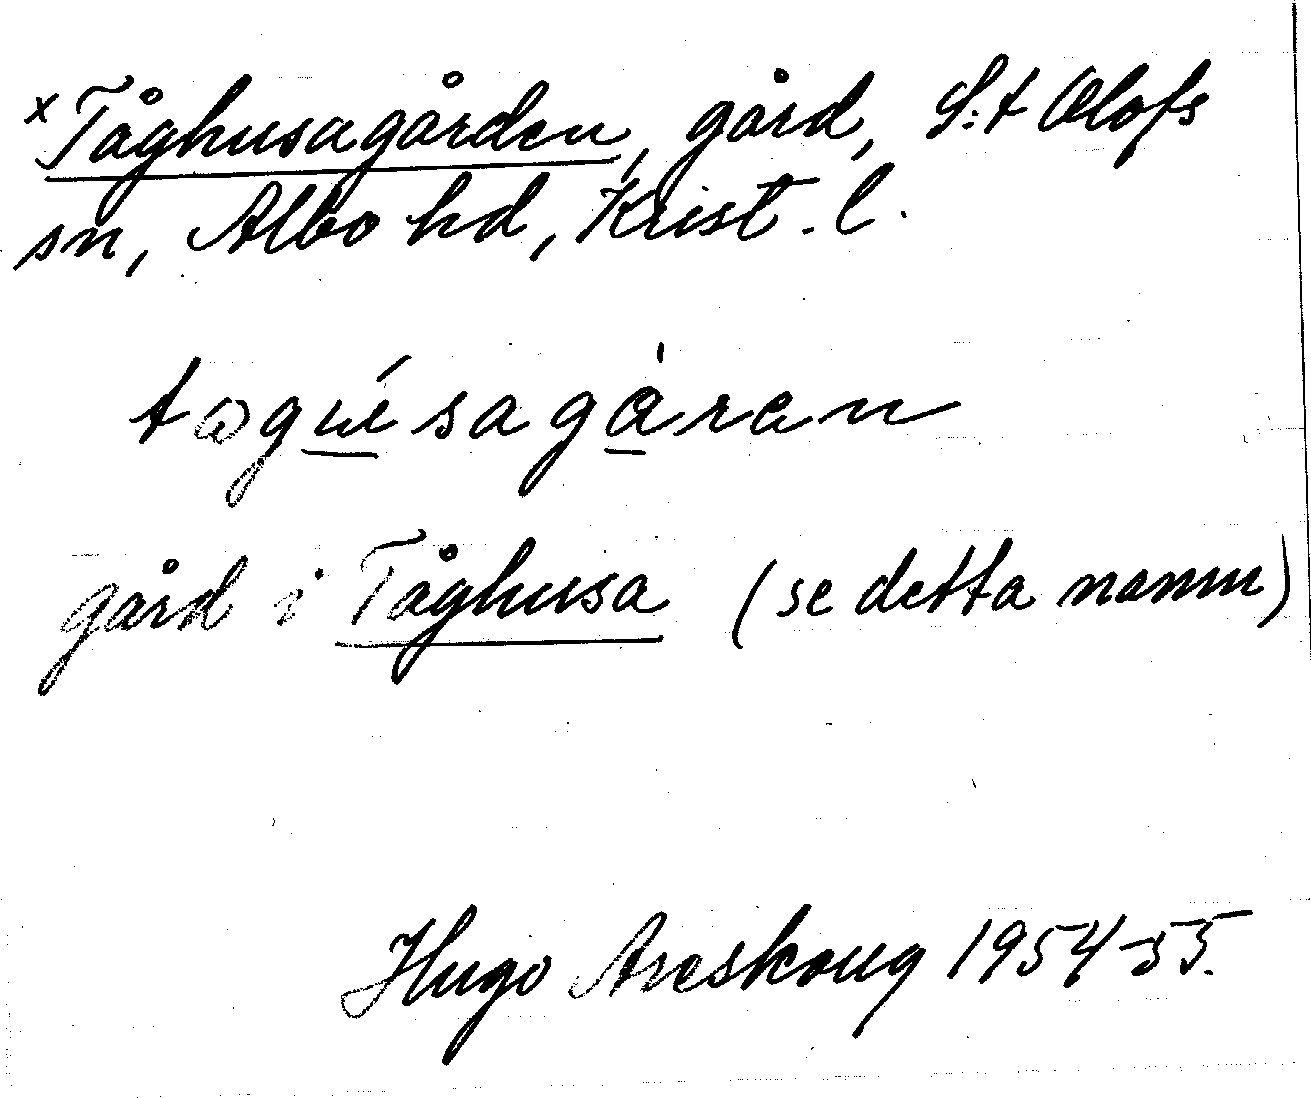 x Tåghusagården, gård, S:t Olofs
sn, Albo hd, Krist. l.
gård i Tåghusa (se detta namn)
Hugo Areskoug 1954-55.